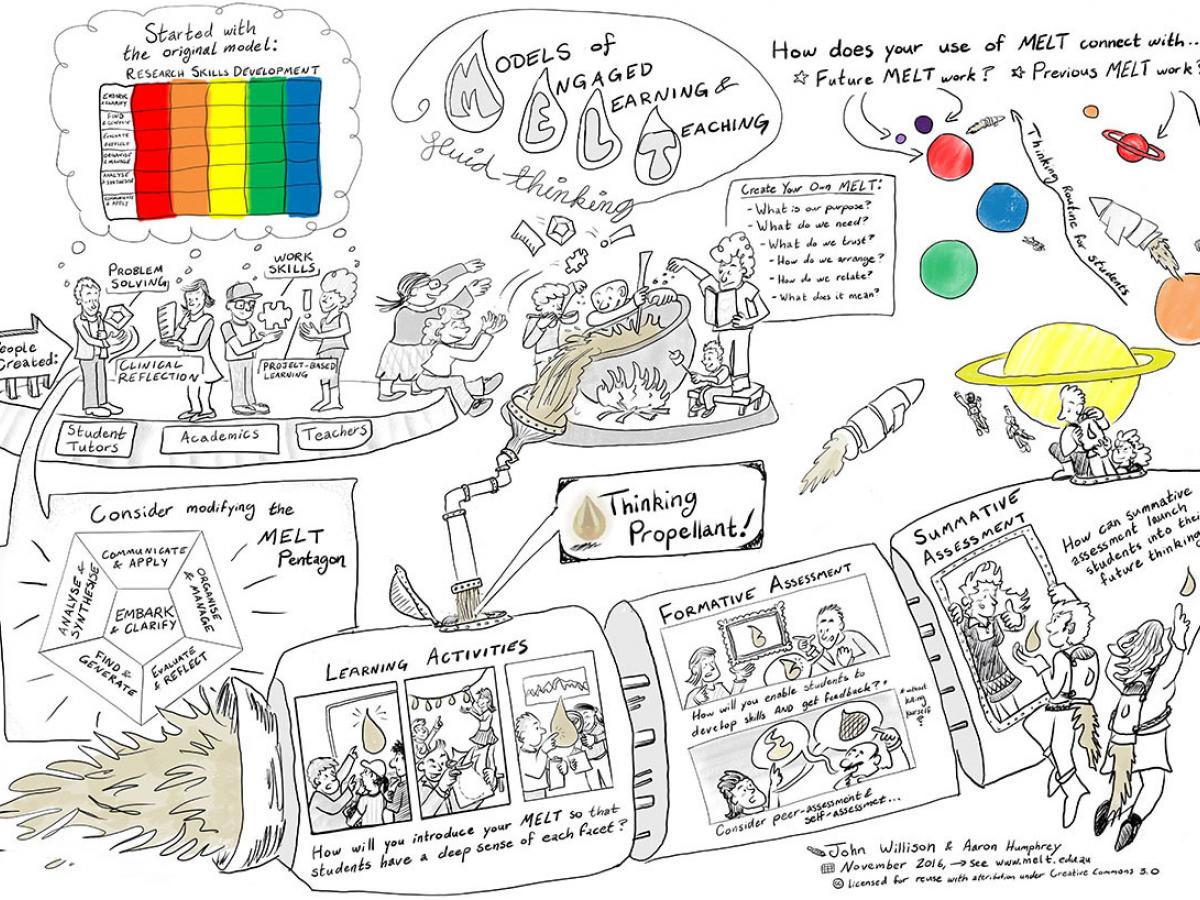 Started with
the original model:
RESEARCH SKILLS DEVELOPMENT
EMBARK
& CLARIFY
FIND
EVALUATE
& REFLECT
ORGANISE
& MANAGE
ANALYSE
& SYNTHESISE
COMMUNICATE
& APPLY
MODELS of
ENGAGED
LEARNING &
TEACHING
fluid thinking
How does your use of MELT connect with...
☆ Future MELT work? ☆ Previous MELT work?
Thinking Routine for students
Create Your Own MELT:
- What is our purpose?
- What do we need?
- What do we trust?
- How do we arrange?
- How do we relate?
- What does it mean?
People
Created:
PROBLEM
SOLVING
WORK
SKILLS
CLINICAL
REFLECTION
PROJECT-BASED
LEARNING
Student
Tutors
Academics
Teachers
Consider modifying the
MELT
Pentagon
COMMUNICATE
& APPLY
ANALYSE &
SYNTHESISE
ORGANISE
& MANAGE
EMBARK
& CLARIFY
FIND &
GENERATE
EVALUATE
& REFLECT
Thinking
Propellant!
LEARNING ACTIVITIES
How will you introduce your MELT so that
students have a deep sense of each facet?
FORMATIVE ASSESSMENT
How will you enable students to
develop skills AND get feedback?*
* without
killing
yourself
?
Consider peer-assessment &
self-assessmet...
SUMMATIVE
ASSESSMENT
How can summative
assessment launch
students into their
future thinking
John Willison & Aaron Humphrey
November 2016, → see www.melt.edu.au
licensed for reuse with atribution under Creative Commons 3.0